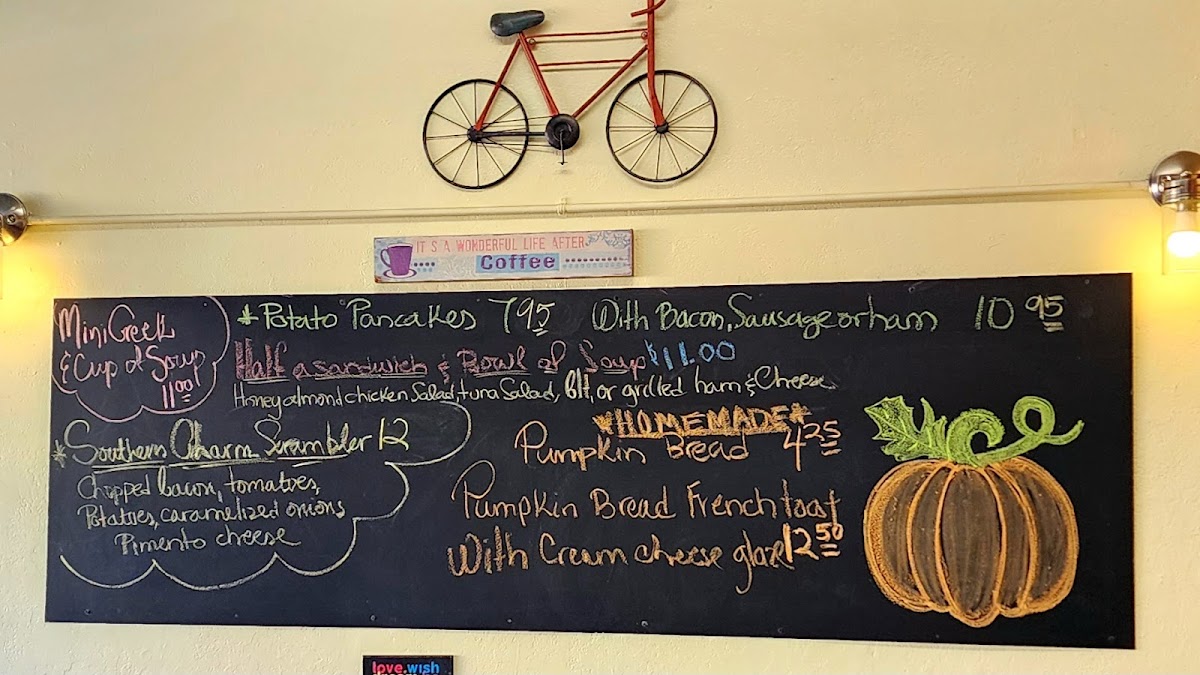 IT'S A WONDERFUL LIFE AFTER
Coffee
Mini Greek
& Cup of Soup
11.00
*Potato Pancakes 7.95 With Bacon, Sausage or ham 10.95
Half a sandwich & Bowl of Soup $11.00
Honey almond chicken Salad, tuna Salad, Blt, or grilled ham & Cheese
*Southern Charm Scrambler 12
Chopped bacon, tomatoes,
Potatoes, caramelized onions
Pimento cheese
*HOMEMADE*
Pumpkin Bread 4.35
Pumpkin Bread French toast
With Cream cheese glaze 12.50
love.wish